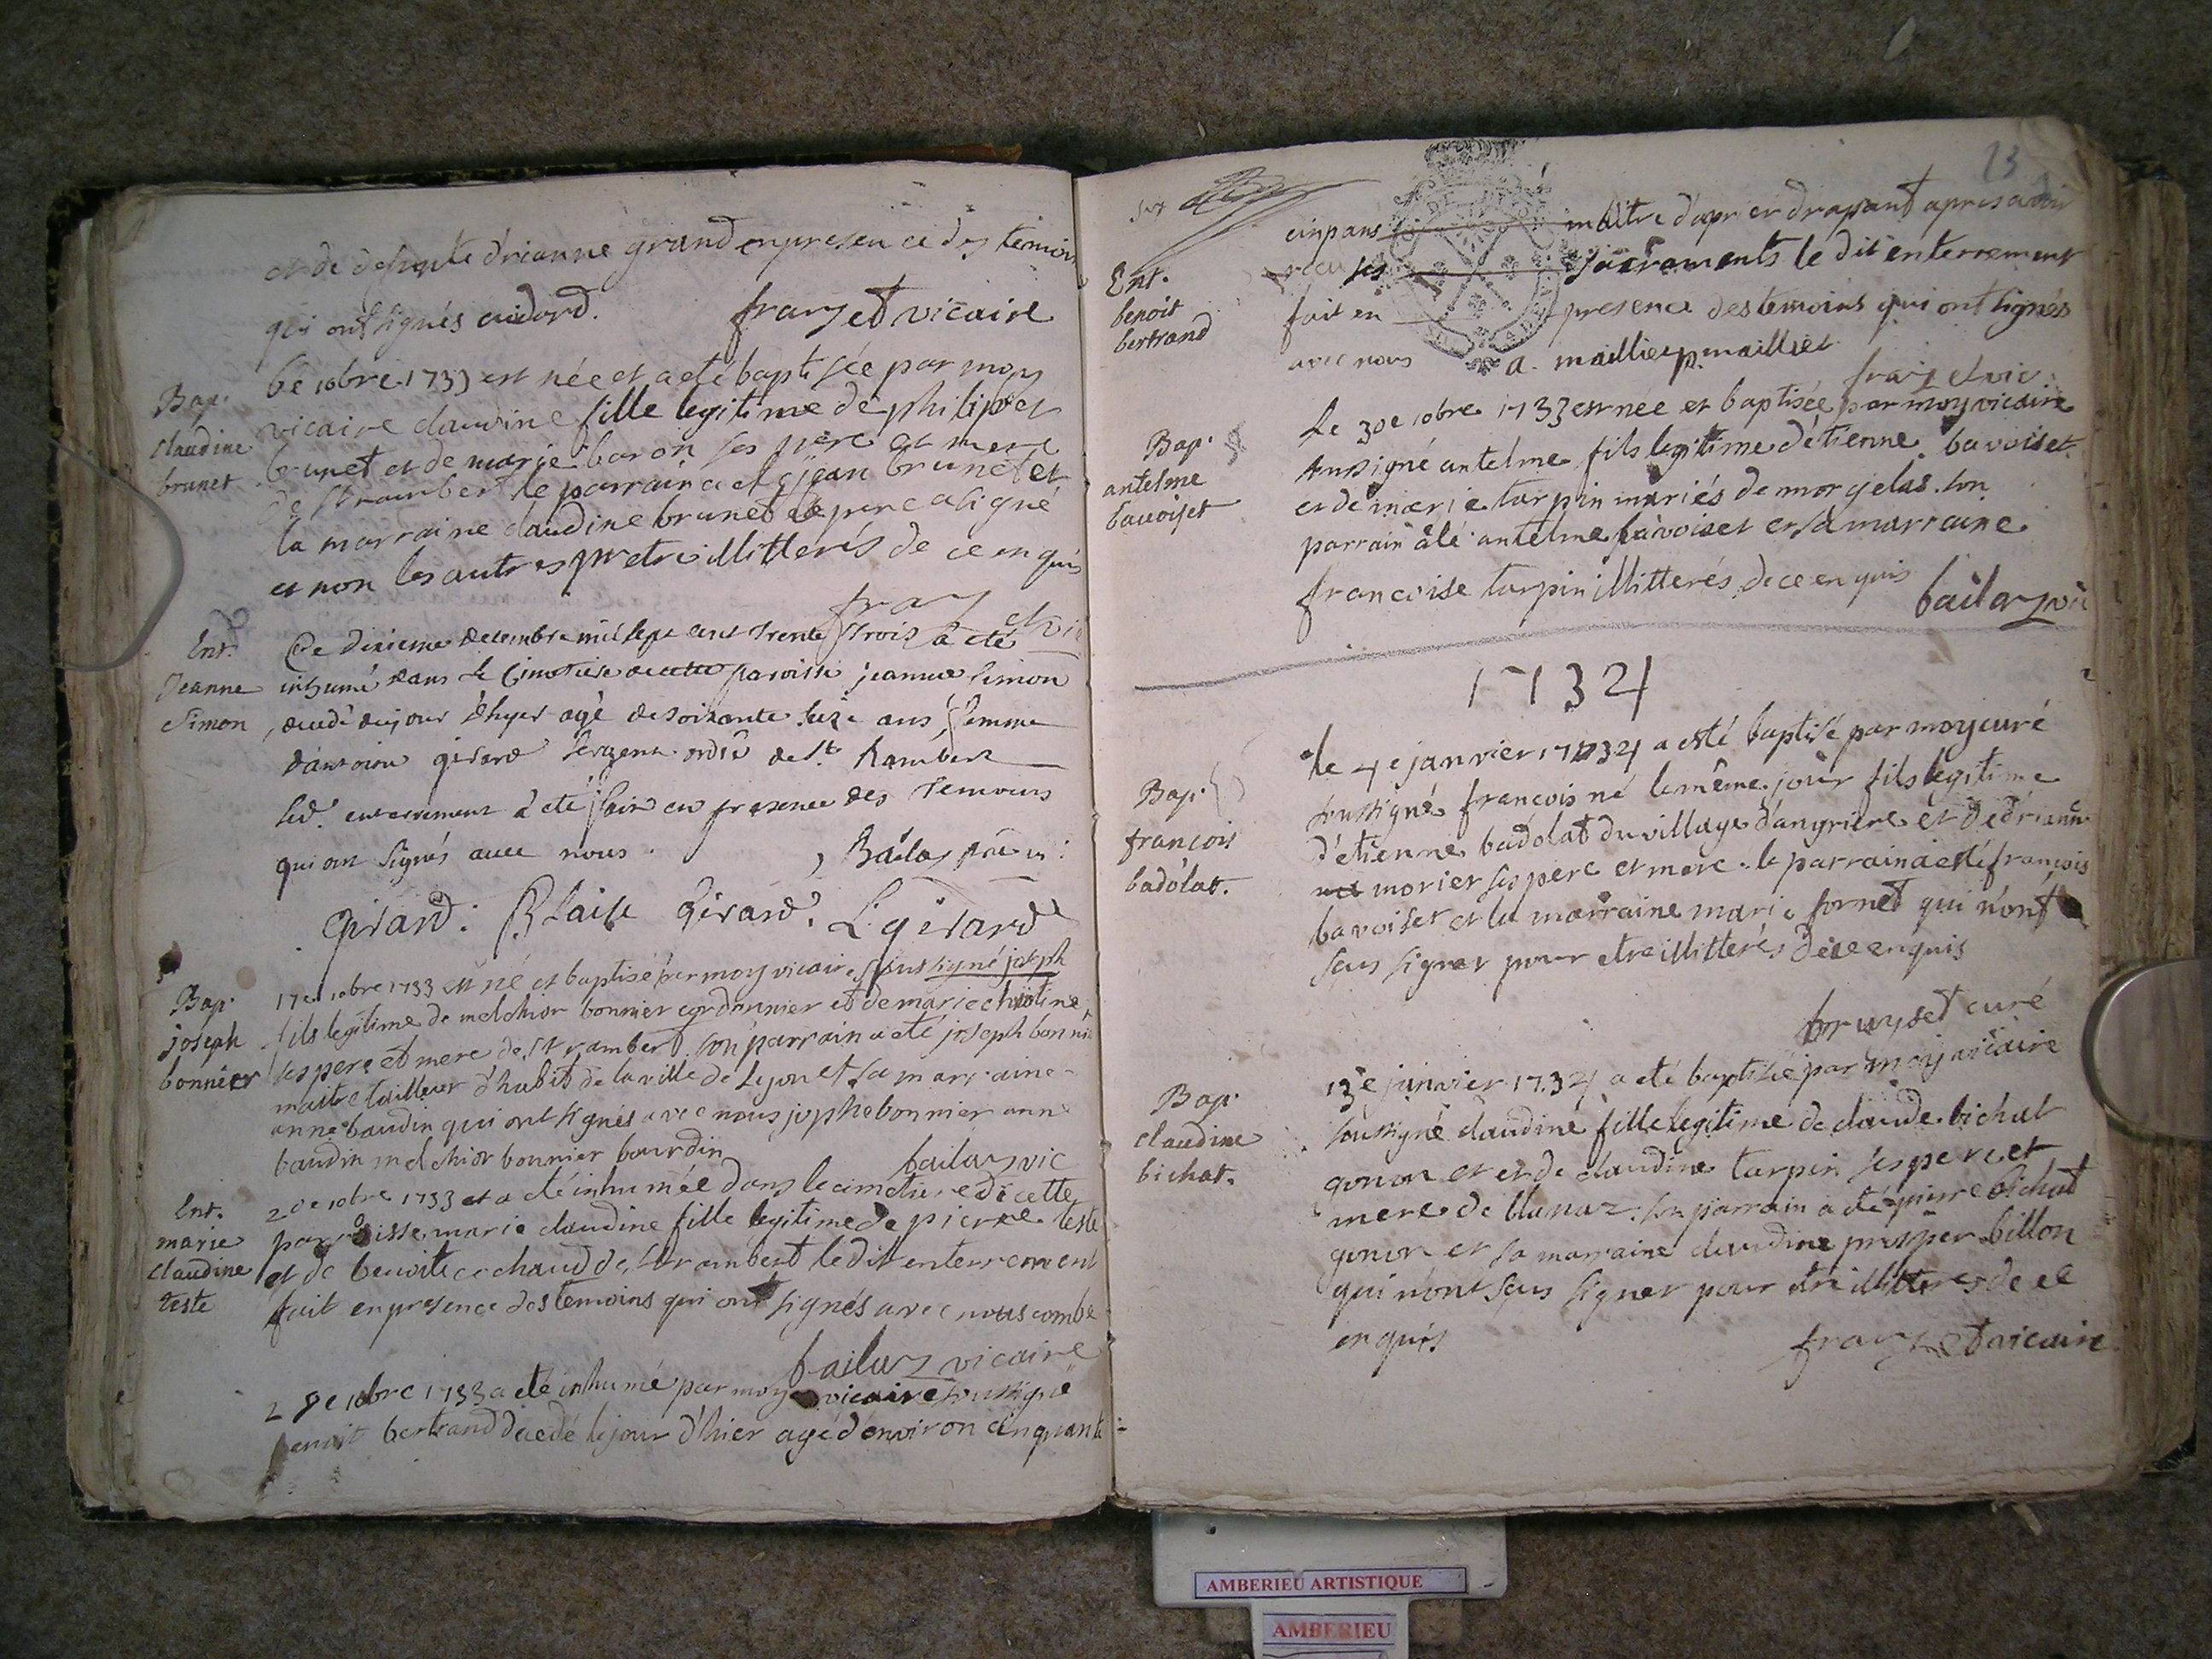 et de defunte drianne grand en presence des temoins
qui ont signés
frayset vicaire
Bap.
claudine
brunet
6e 10bre 1733 est née et a eté baptisée par moy
vicaire claudine fille legitime de philipbet
brunet et de marie baron ses pere et mere
de St rambert le parrain a eté jean brunet et
la marraine claudine brunet le pere a signé
et non les autres pour etre illitterés de ce enquis
frayset vic
Ent.
Jeanne
Simon
Ce dixieme decembre mil sept cent trente trois a eté
inhumé dans le Cimetiere de cette paroisse jeanne Simon
decedé du jour d'hyer agé de soixante seize ans, femme
d'antoine girard sergent ordre de St. Rambert
led. enterrement a eté fait en presence des temoins
qui ont signés avec nous.
Girard. Blaise Girard. L girard
Bap.
joseph
bonnier
17e 10bre 1733 est né et baptisé par moy vicaire soussigné joseph
fils legitime de melchior bonnier cordonnier et de marie christine
ses pere et mere de St rambert son parrain a eté joseph bonnier
maitre tailleur d'habits de la ville de Lyon et sa marraine
anne baudin qui ont signés avec nous josphe bonnier anne
baudin melchior bonnier bourdin
bailar vic
Ent.
marie
claudine
teste
20e 10bre 1733 et a eté inhumée dans le cimetiere de cette
parroisse marie claudine fille legitime de pierre teste
et de benoite cochaud de St rambert le dit enterrement
fait en presence des temoins qui ont signés avec nous combe
vicaire
28e 10bre 1733 a eté inhumé par moy vicaire soussigné
benoit bertrand decedé le jour d'hier agé d'environ cinquante
23
Ent.
benoit
bertrand
cinq ans maitre drapier drapant apres avoir
recu ses sacrements le dit enterrement
fait en presence des temoins qui ont signés
avec nous a. maillier p. maillier
frayset vic
Bap.
antelme
bavoiset
Le 30e 10bre 1733 est nee et baptisée par moy vicaire
soussigné antelme fils legitime d'etienne bavoiset
et de marie turpin mariés de morgelas. son
parrain a eté antelme bavoiset et sa marraine
francoise turpin illitterés de ce enquis
1734
Bap.
francois
badolat.
le 4e janvier 1734 a esté baptisé par moy curé
soussigné francois né le même jour fils legitime
d'etienne badolat du village d'angrieres et de drianne
morier ses pere et mere. le parrain a esté françois
bavoiset et la marraine marie fornet qui n'ont
sçus signer pour etre illitterés de ce enquis
bruyset curé
Bap.
claudine
bichat.
13e janvier 1734 a eté baptisée par moy vicaire
soussigné claudine fille legitime de claude bichat
gonon et et de claudine turpin ses pere et
mere de blanaz. son parrain a eté pierre bichat
gonon et sa marraine claudine prosper billon
qui n'ont sçus signer pour etre illitterés de ce
enquis
frayset vicaire
AMBERIEU ARTISTIQUE
AMBERIEU